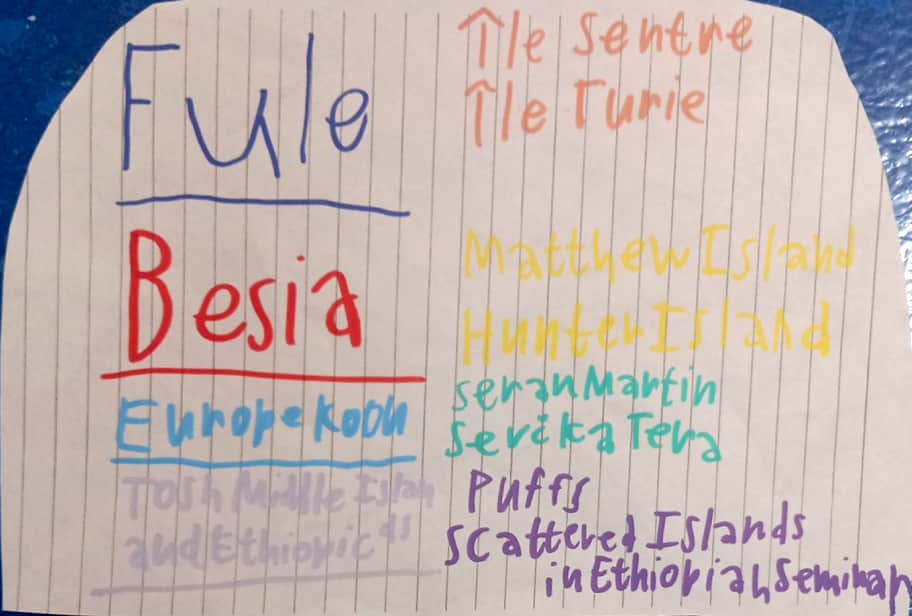 Fule
Île Sentre
Île Turie
Besia
Matthew Island
Hunter Island
Europe Koou
Seran Martin
Serika Tera
Tosh Middle Islan
ds
and Ethiopic
Puffs
Scattered Islands
in Ethiopian Seminar